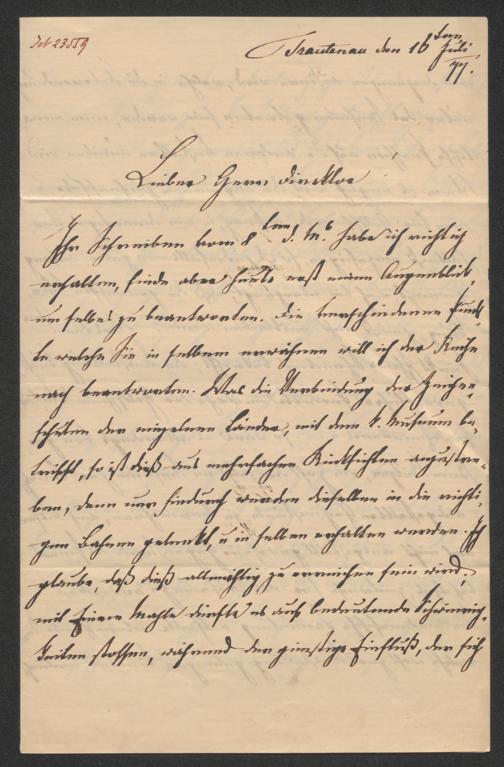 JN 23559
Trautenau den 16ten Juli
77.
Lieber Herr Direktor
Ihr Schreiben vom 8ten d. Mts habe ich richtig
erhalten, finde aber heute erst einen Augenblick,
um selbes zu beantworten. Die verschiedenen Punk-
te welche Sie in selbem erwähnen will ich der Reihe
nach beantworten. Was die Verbindung der Zeichen-
schulen der einzelnen Länder, mit dem k. Museum be-
trifft, so ist dieß aus mehrfachen Rücksichten anzustre-
ben, denn nur hiedurch werden dieselben in die richti-
gen Bahnen gelenkt, u in selben erhalten werden. Ich
glaube, daß dieß allmählig zu erreichen sein wird,
mit Einem Mahle dürfte es auf bedeutende Schwierig-
keiten stossen, während der günstige Einfluß, der sich